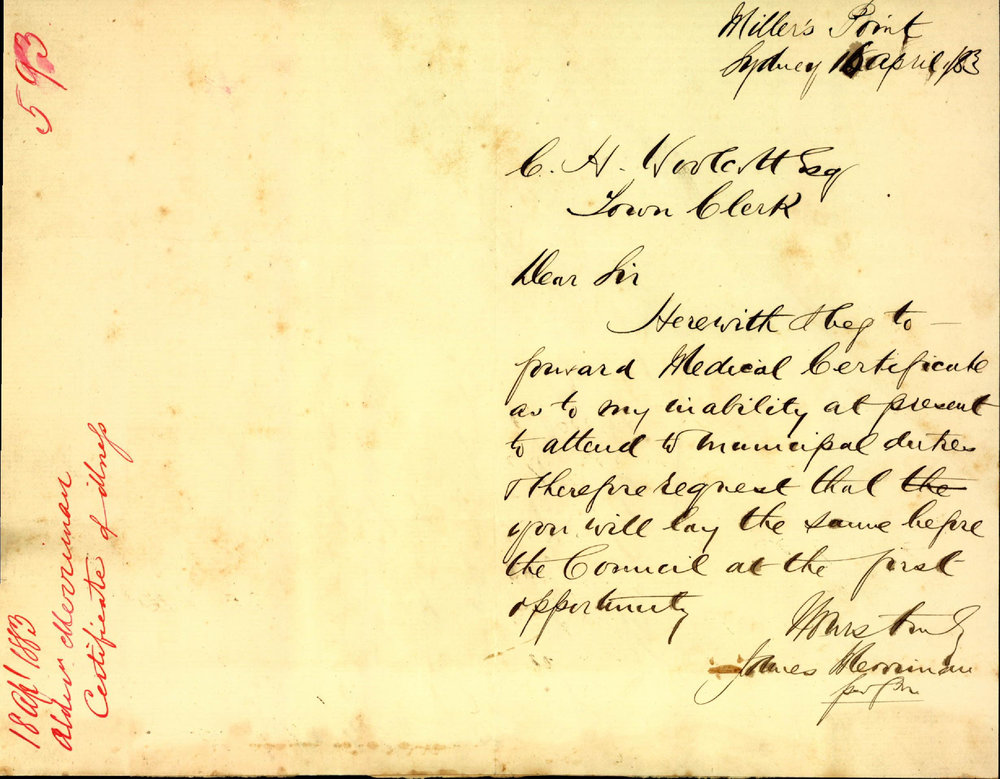 593
18 apl 1883
Aldermn Merriman
Certificate of illness
Miller's Point
Sydney April /83
C. H. Woolcott Esq
Town Clerk
Dear Sir
Herewith I beg to
forward Medical Certificate
as to my inability at present
to attend to municipal duties
& therefore request that the
you will lay the same before
the Council at the first
opportunity
Yours truly
James Merriman